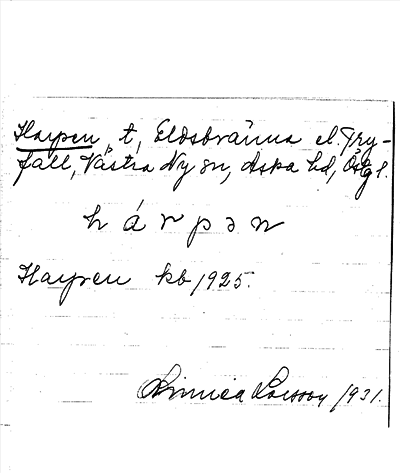 Harpen, t, Eldsbränna el. Try-
fall, Västra Ny sn, Aska hd, Östgl.
hárpən
Harpen kb 1925.
Linnea Larsson 1931.